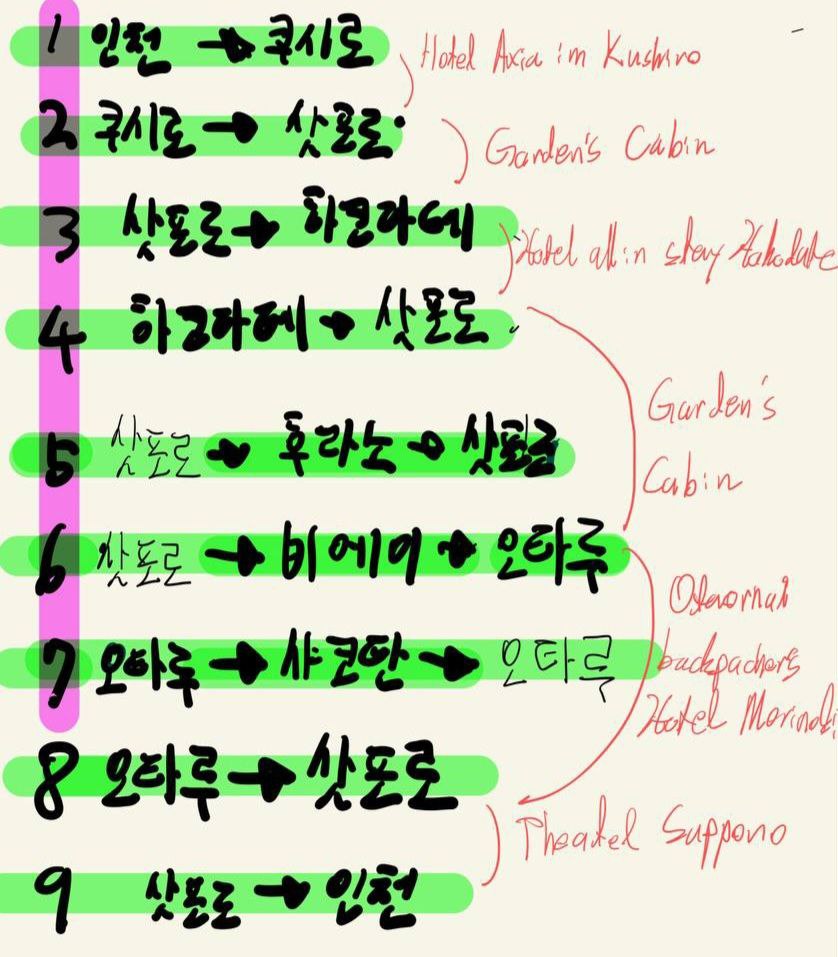 1 인천 → 쿠시로
Hotel Axia in Kushiro
2 쿠시로 → 삿포로
Garden's Cabin
3 삿포로 → 하코다테
Hotel all in stay Hakodate
4 하코다테 → 삿포로
Garden's
Cabin
5 삿포로 → 후라노 → 삿포로
6 삿포로 → 비에이 → 오타루
backpacker's
Hotel Morinoki
7 오타루 → 샤코탄 → 오타루
8 오타루 → 삿포로
Theatel Sapporo
9 삿포로 → 인천